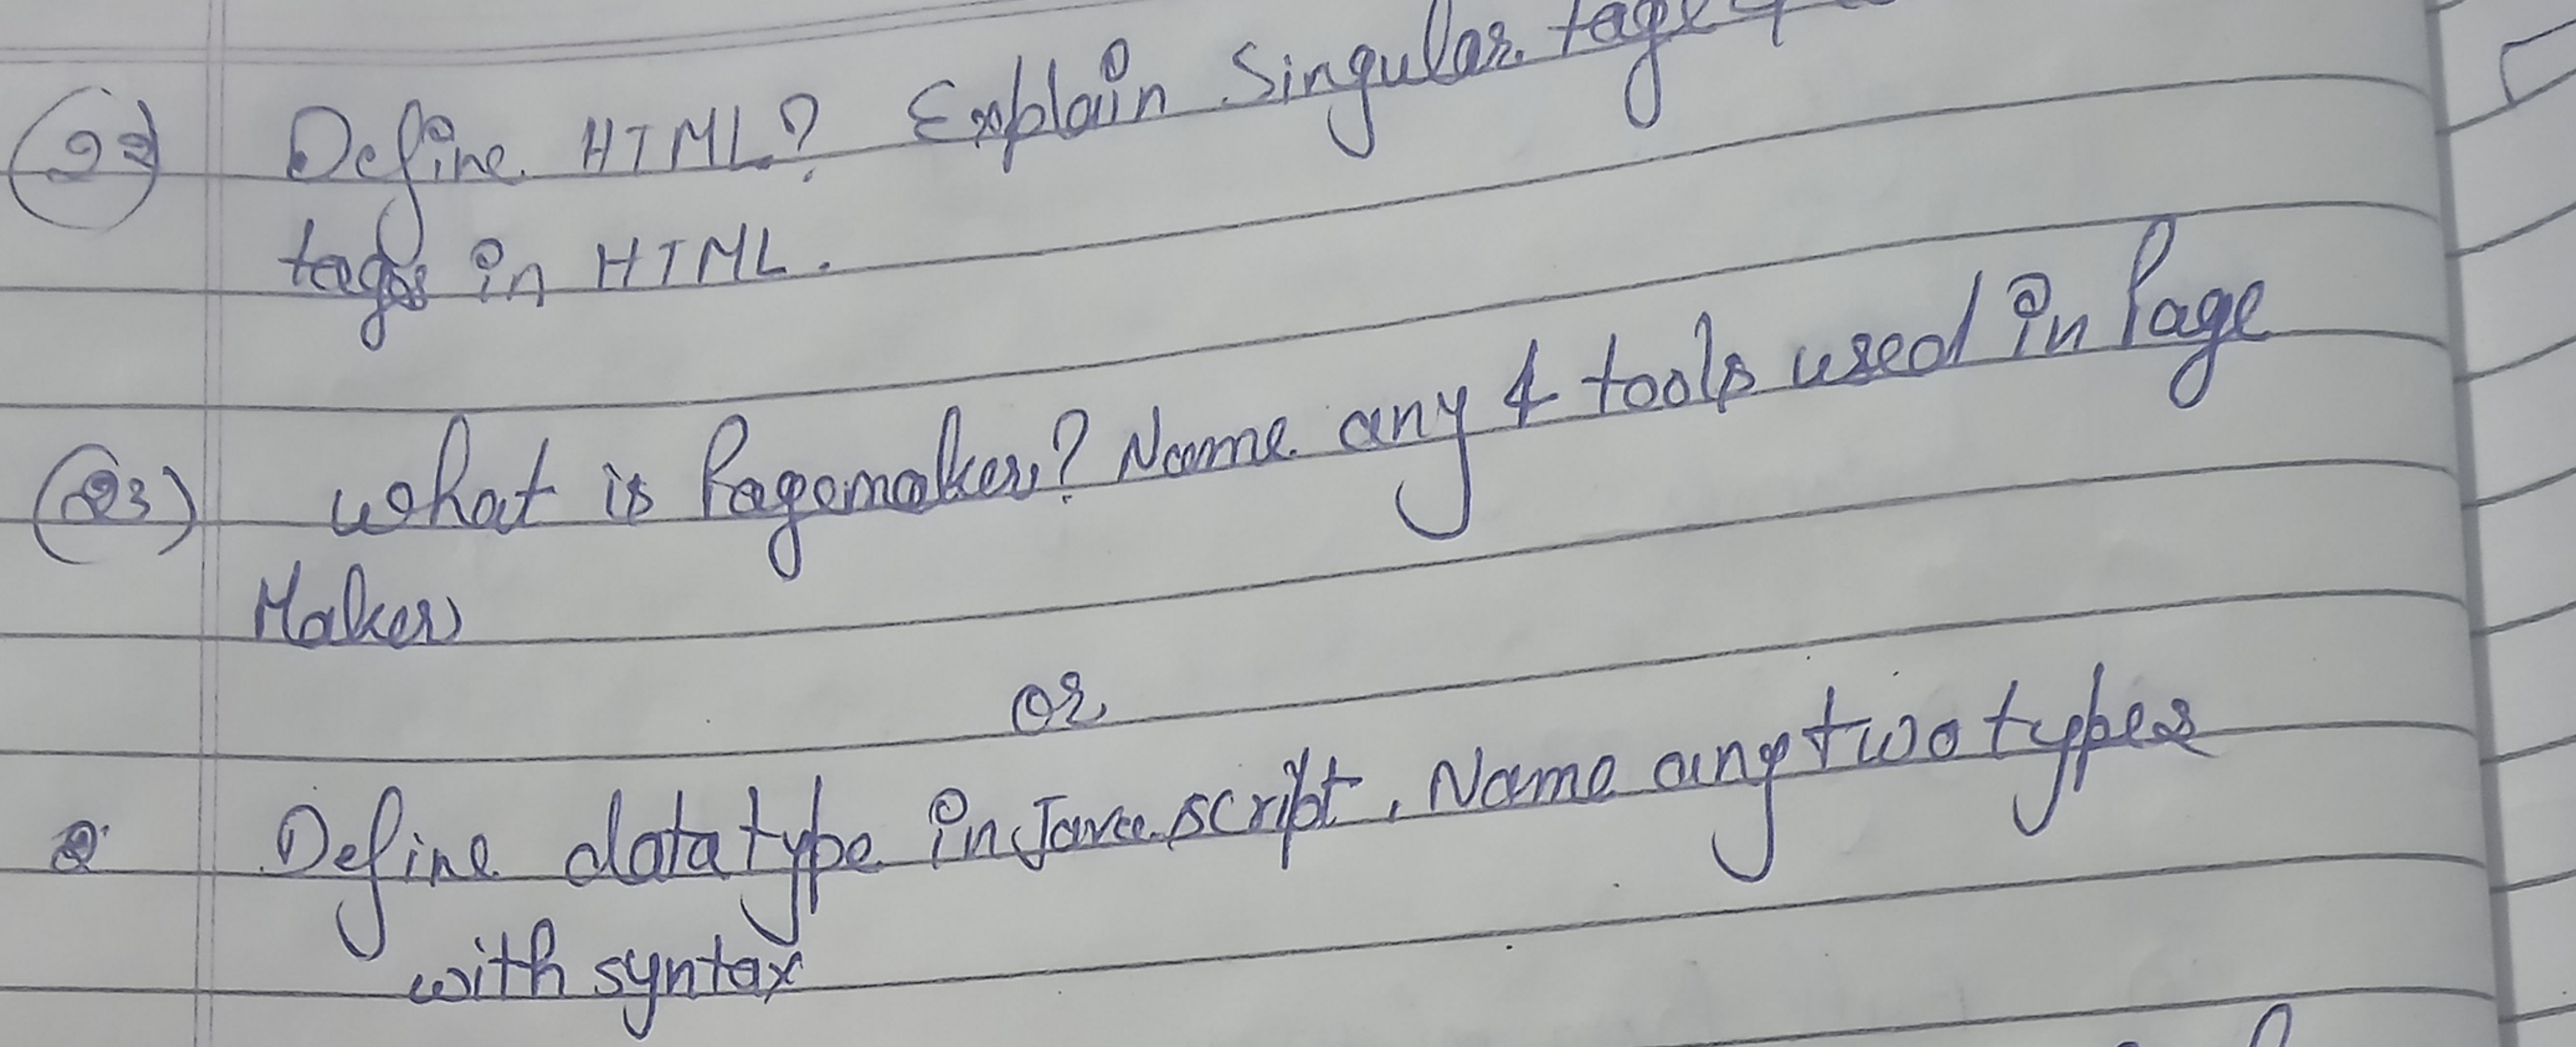 22 Define HTML? Explain Singular tage
tags in HTML.
23) What is Pagemaker? Name any 4 tools used in Page
Maker
or
Q Define data type in Java script. Name any two types
with syntax